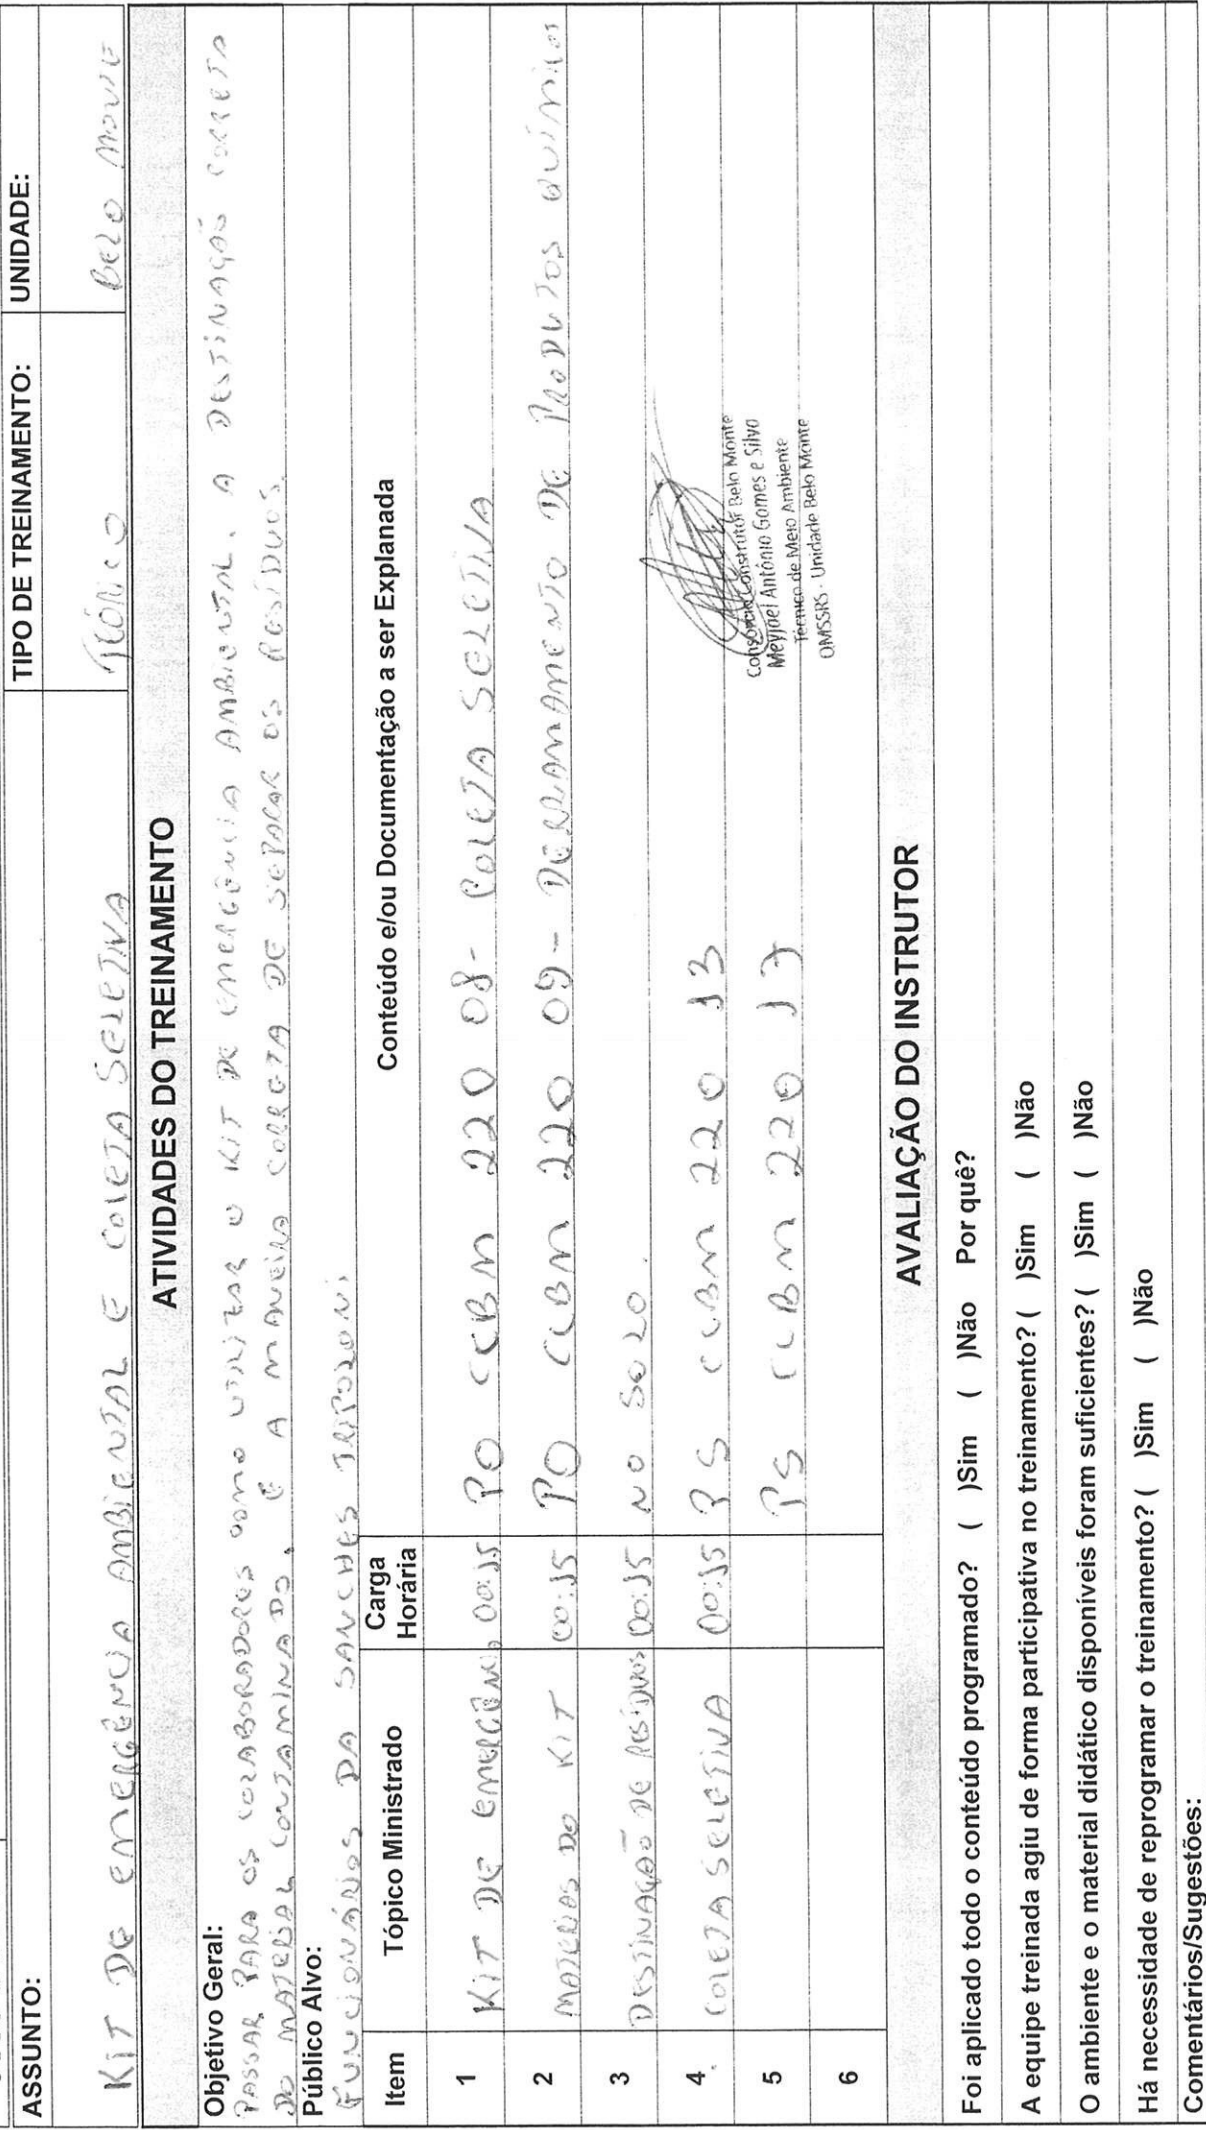 ASSUNTO:
TIPO DE TREINAMENTO:
UNIDADE:
KIT DE EMERGÊNCIA AMBIENTAL E COLETA SELETIVA
TEÓRICO
BELO MONTE
ATIVIDADES DO TREINAMENTO
Objetivo Geral:
PASSAR PARA OS COLABORADORES COMO UTILIZAR O KIT DE EMERGÊNCIA AMBIENTAL. A DESTINAÇÃO CORRETA
DO MATERIAL CONTAMINADO. E A MANEIRA CORRETA DE SEPARAR OS RESÍDUOS.
Público Alvo:
FUNCIONÁRIOS DA SANCHES TRIPOLONI
Item Tópico Ministrado Carga Horária Conteúdo e/ou Documentação a ser Explanada
1 KIT DE EMERGÊNCIA 00:15 PO CCBM 220 08 - COLETA SELETIVA
2 MATERIAS DO KIT 00:15 PO CCBM 220 09 - DERRAMAMENTO DE PRODUTOS QUÍMICOS
3 DESTINAÇÃO DE RESÍDUOS 00:15 NO SOLO.
4. COLETA SELETIVA 00:15 PS CCBM 220 13
5 PS CCBM 220 17
6
Consórcio Construtor Belo Monte
Meyjael Antônio Gomes e Silva
Técnico de Meio Ambiente
QMSSRS - Unidade Belo Monte
AVALIAÇÃO DO INSTRUTOR
Foi aplicado todo o conteúdo programado? ( )Sim ( )Não Por quê?
A equipe treinada agiu de forma participativa no treinamento? ( )Sim ( )Não
O ambiente e o material didático disponíveis foram suficientes? ( )Sim ( )Não
Há necessidade de reprogramar o treinamento? ( )Sim ( )Não
Comentários/Sugestões: